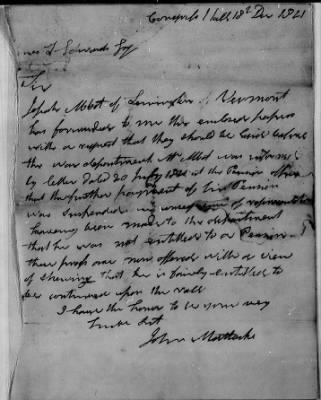 18th Dec 1821
Edwards Esq
Sir
Abbot of Vermont
has forwarded to me the enclosed papers
with a request that they should be laid before
the war department Mr Abbot was informed
by letter dated 20 July at the Pension office
that the further payment of his Pension
was suspended in of representations
haveing been made to the department
that he was not entitled to a Pension
these proofs are now offered with a view
of shewing that he is fairly entitled to
be continued upon the roll
I have the honor to be your very
humble Svt
John Mattocks